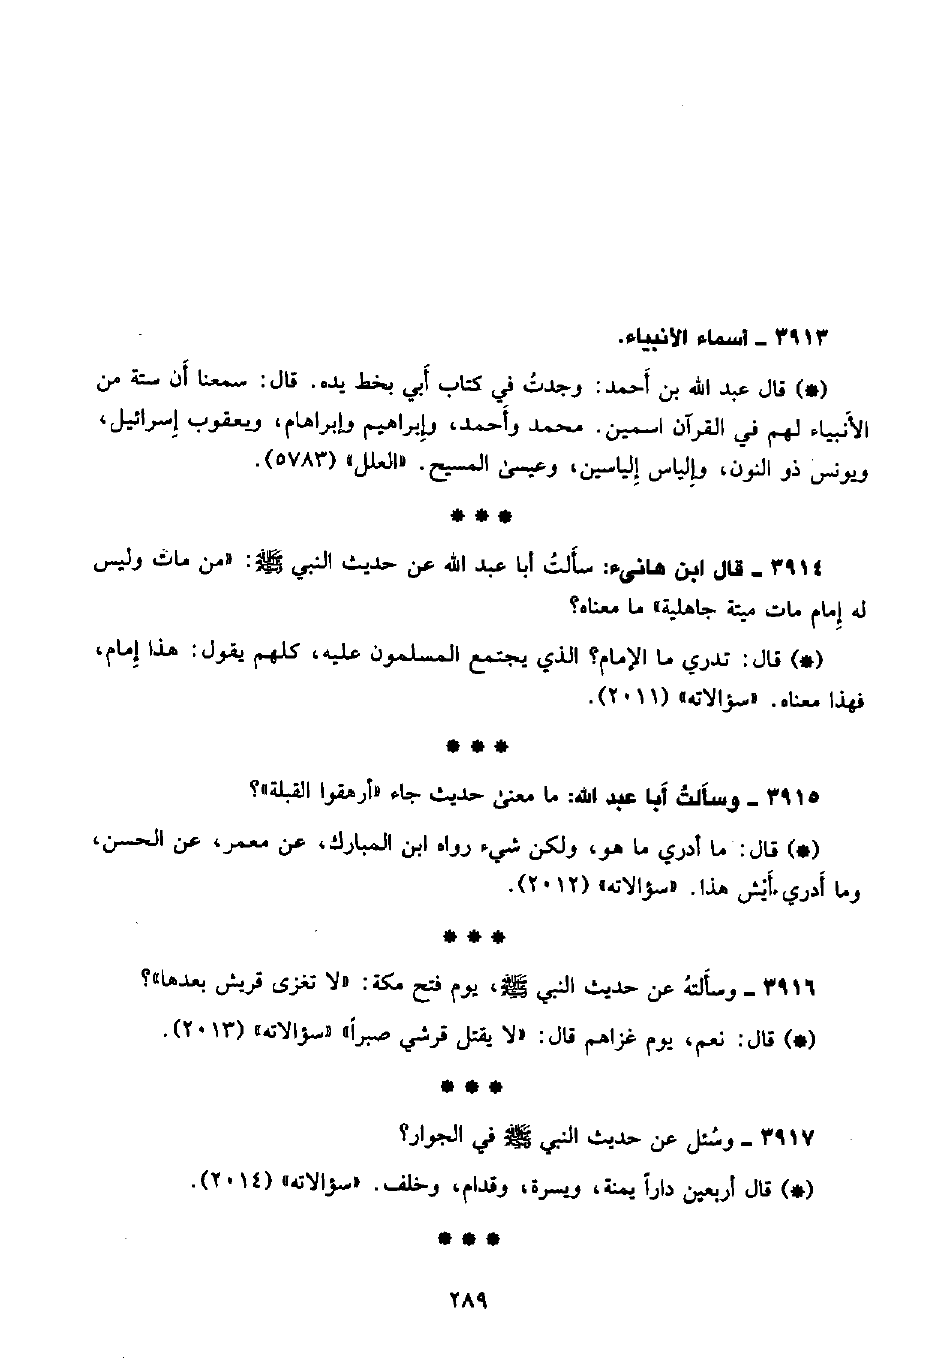 ٣٩١٣ ـ أسماء الأنبياء.
(*) قال عبد الله بن أَحمد: وجدتُ في كتاب أَبي بخط يده. قال: سمعنا أَن ستة من
الأَنبياء لهم في القرآن اسمين. محمد وأَحمد، وإِبراهيم وإِبراهام، ويعقوب إِسرائيل،
ويونس ذو النون، وإِلياس إِلياسين، وعيسىٰ المسيح. «العلل» (٥٧٨٣).
* * *
٣٩١٤ ـ قال ابن هانىء: سأَلتُ أبا عبد الله عن حديث النبي ﷺ: «من مات وليس
له إِمام مات ميتة جاهلية» ما معناه؟
(*) قال: تدري ما الإمام؟ الذي يجتمع المسلمون عليه، كلهم يقول: هذا إِمام،
فهذا معناه. «سؤالاته» (٢٠١١).
* * *
٣٩١٥ ـ وسأَلتُ أَبا عبد الله: ما معنىٰ حديث جاء «أرهقوا القبلة»؟
(*) قال: ما أدري ما هو، ولكن شيء رواه ابن المبارك، عن معمر، عن الحسن،
وما أَدري أَيْش هذا. «سؤالاته» (٢٠١٢).
* * *
٣٩١٦ ـ وسأَلتهُ عن حديث النبي ﷺ، يوم فتح مكة: «لا تغزى قريش بعدها»؟
(*) قال: نعم، يوم غزاهم قال: «لا يقتل قرشي صبراً» «سؤالاته» (٢٠١٣).
* * *
٣٩١٧ ـ وسُئل عن حديث النبي ﷺ في الجوار؟
(*) قال أربعين داراً يمنة، ويسرة، وقدام، وخلف. «سؤالاته» (٢٠١٤).
* * *
٢٨٩